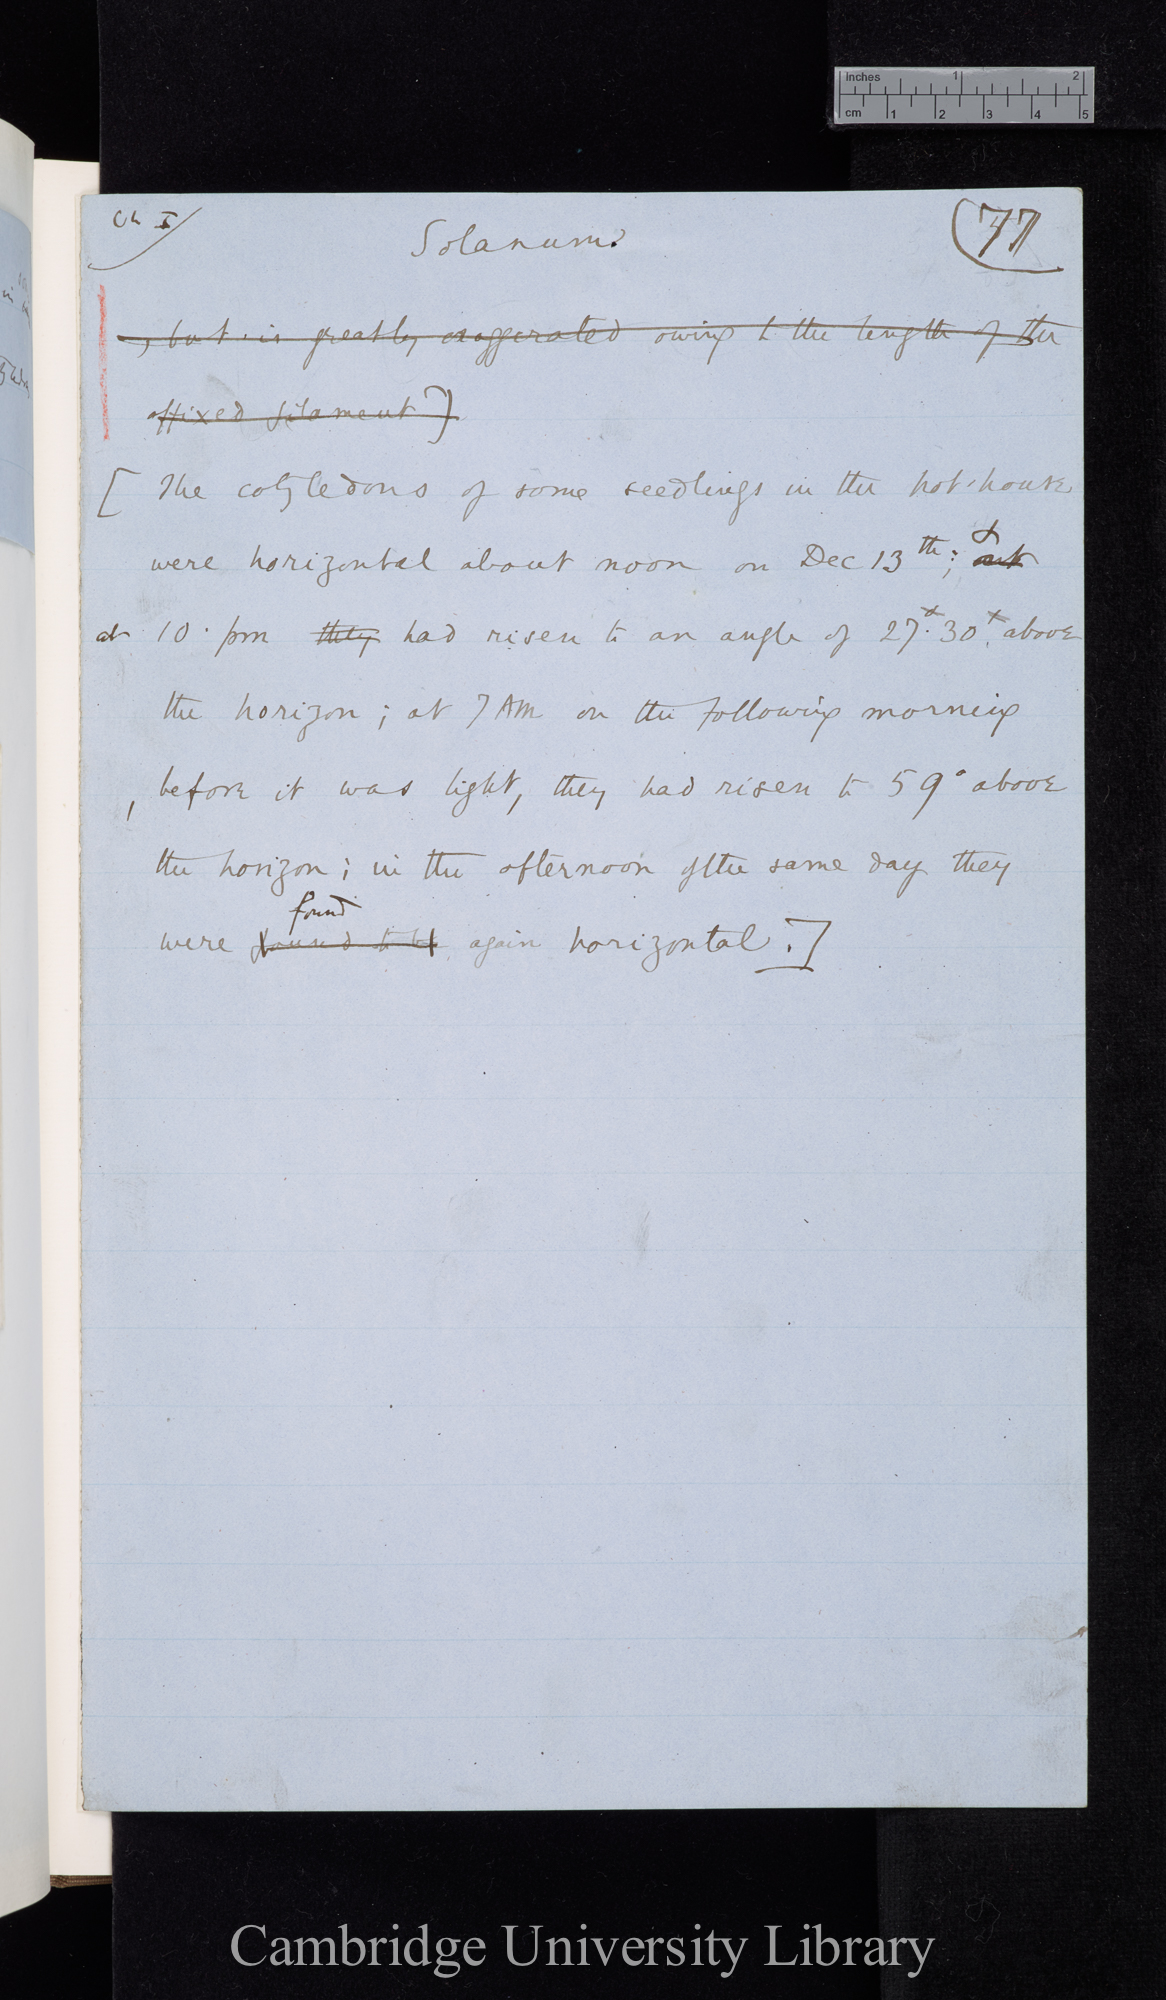 Inches 1 2
cm 1 2 3 4 5
Ch I
Solanum
77
, but is greatly exaggerated owing to the length of the
affixed filament]
[ The cotyledons of some seedlings in the hot-house
&
were horizontal about noon on Dec 13th; but
at 10 pm they had risen to an angle of 27° 30' above
the horizon; at 7 AM on the following morning
, before it was light, they had risen to 59° above
the horizon; in the afternoon of the same day they
found
were found to be again horizontal.]
Cambridge University Library